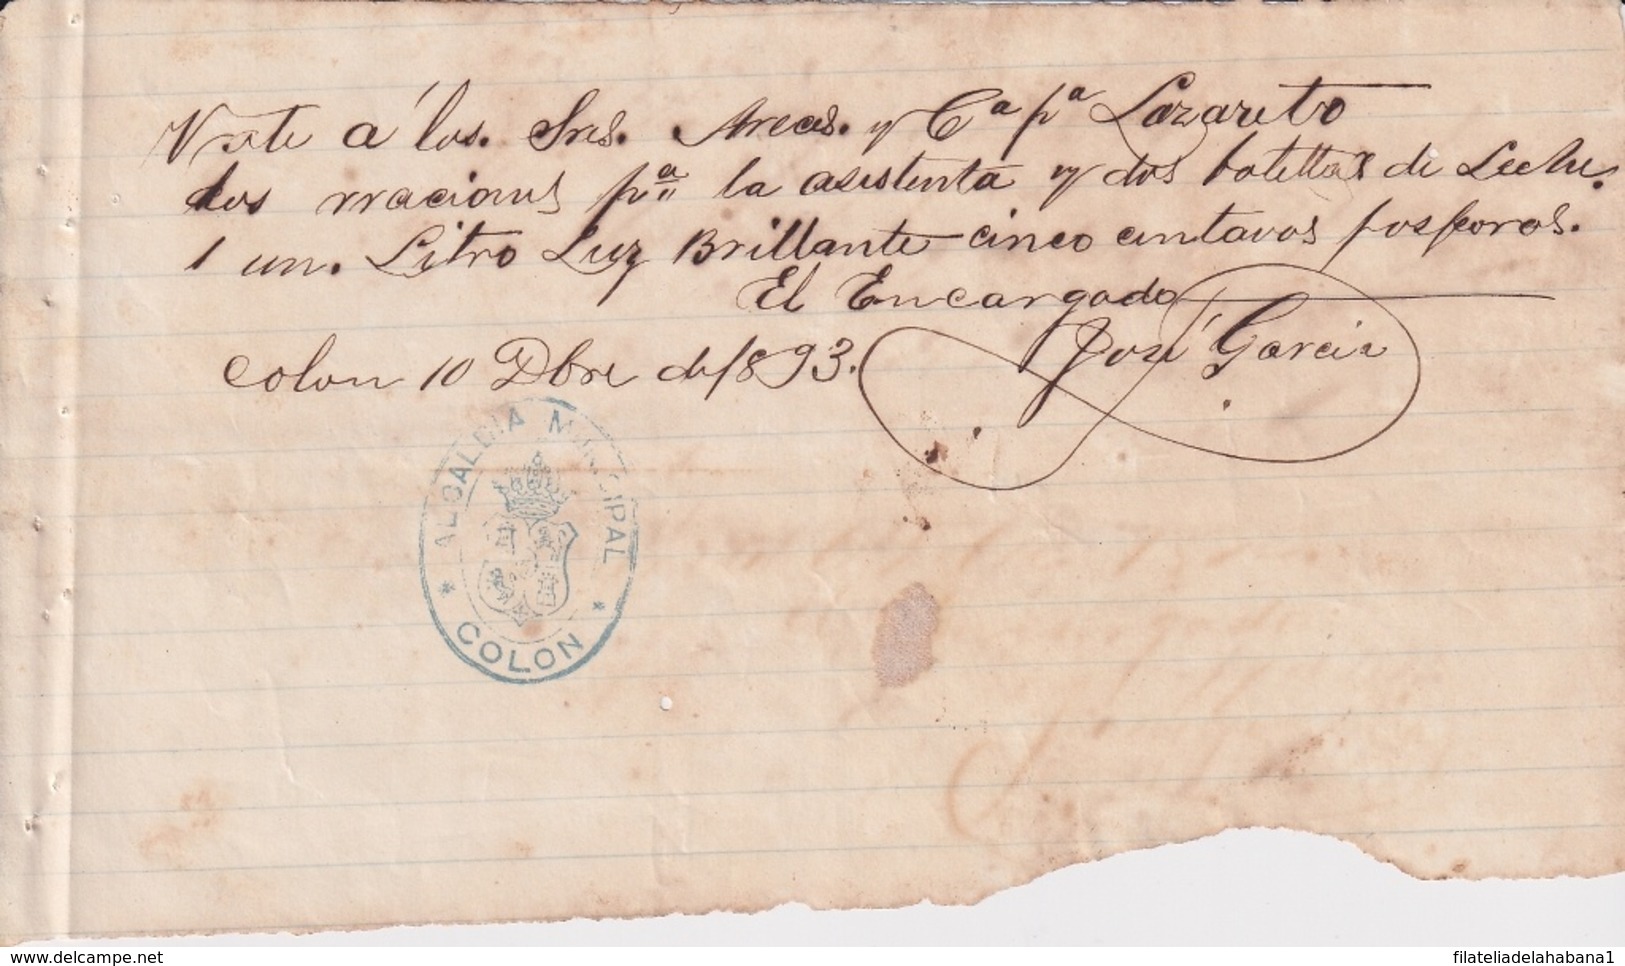 Vale á los. Sres. Arecas. y Cª pª Lazareto
dos rraciones pª la asistenta y dos botellas de Leche.
1 un. Litro Luz Brillante cinco centavos fosforos.
El Encargado
Colon 10 Dbre de 1893.
José Garcia
ALCALDIA MUNICIPAL
* COLON *
delcampe.net
filateliadelahabana1